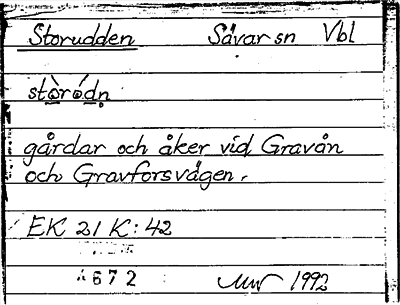 Storudden Sävar sn Vbl
stò̱ró̱dṇ
gårdar och åker vid Gravån
och Gravforsvägen.
EK 21 K:42
672 1992